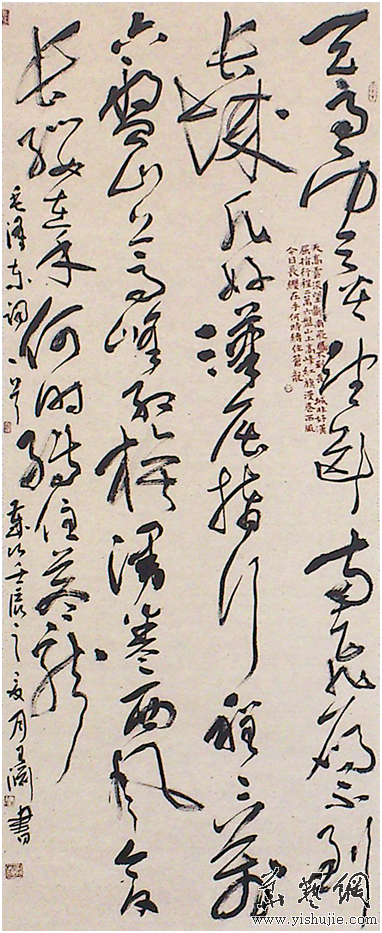 天高云淡望断南飞雁不到
长城非好汉屈指行程二万
六盘山上高峰红旗漫卷西风今日
长缨在手何时缚住苍龙
毛泽东词一首 岁次壬辰之夏月王渊書
天高雲淡望斷南飛雁不到長城非好漢
屈指行程二萬六盤山上高峰紅旗漫卷西風
今日長纓在手何時縛住蒼龍
藝網
www.yishujie.com